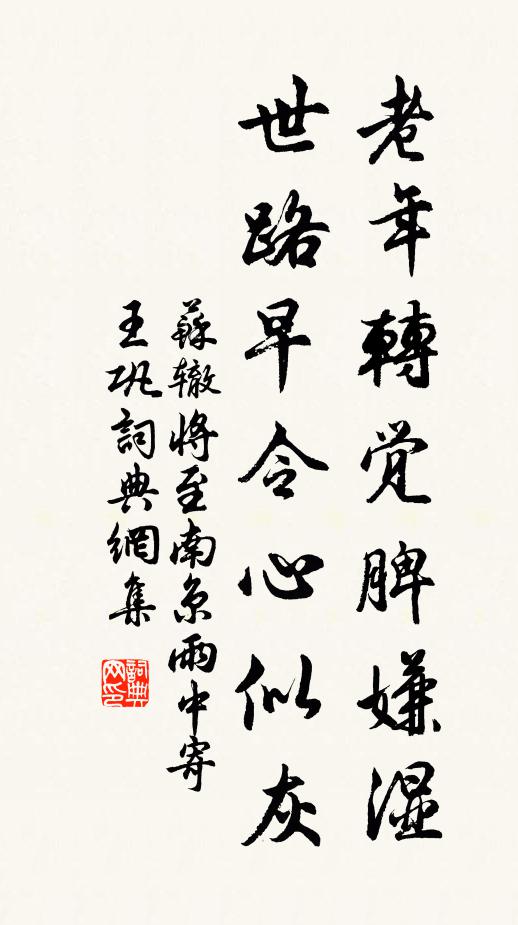 老年轉覺脾嫌濕
世路早令心似灰
蘇轍將至南京雨中寄
王巩詞典網集
詞典网印